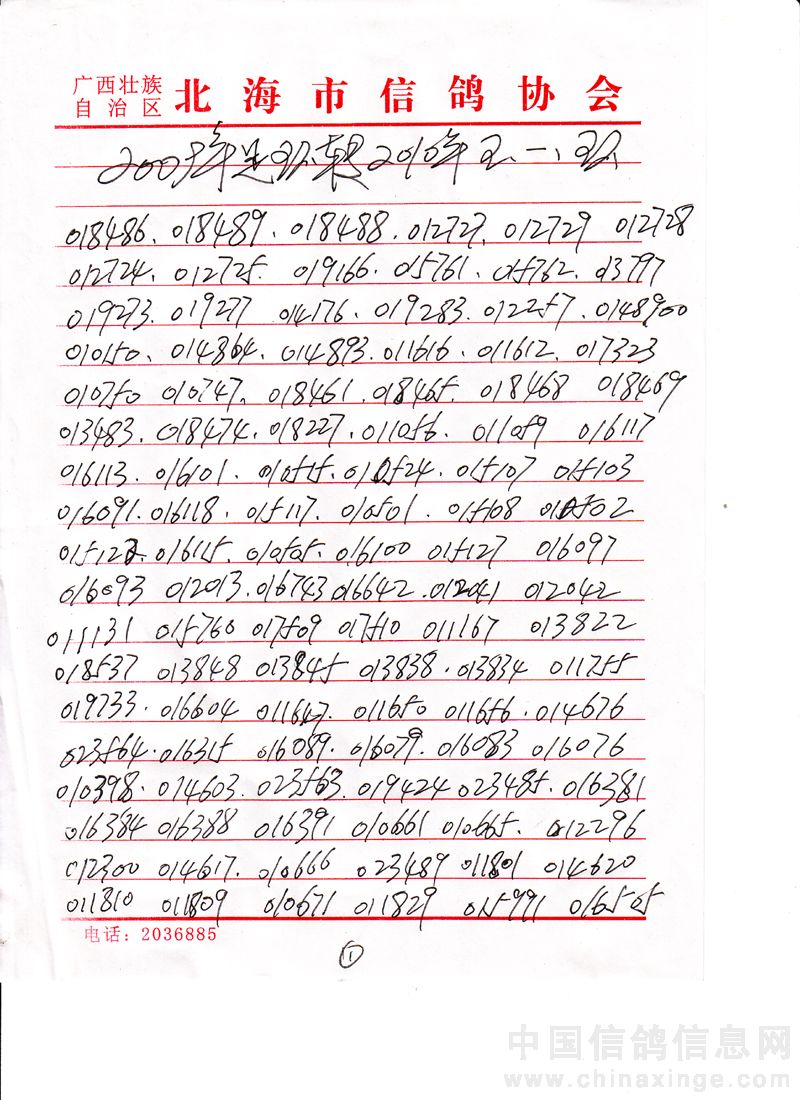 广西壮族
自治区 北海市信鸽协会
2009年足环转2010年五.一.环
018486. 018489. 018488. 012727. 012729 012728
012724. 012725. 019166. 015761. 015762. 013797
019273. 019277 014176. 019283. 012257. 0148900
010150. 014864. 014893. 011616. 011612. 017323
010750 010747. 018461. 018465. 018468 018469
013483. 018474. 018227. 011056. 011059 016117
016113. 016101. 010515. 010524. 015107 015103
016091. 016118. 015117. 010501. 015108 010502
015123. 016115. 010505. 016100 015127 016097
016093 012013. 016743 016642. 012041 012042
011131 015760 017509 017510 011167 013822
018537 013848 013845 013838. 013834 011755
019733. 016604 011647. 011650 011656. 014676
023564. 016315 016089. 016079. 016083 016076
010398. 014603. 023563. 019424 023485. 016381
016384 016388 016391 010661 010665. 012296
012300 014617. 010666 023489 011801 014620
011810 011809 010671 011829 015991 016505
电话：2036885
①
中国信鸽信息网
www.chinaxinge.com